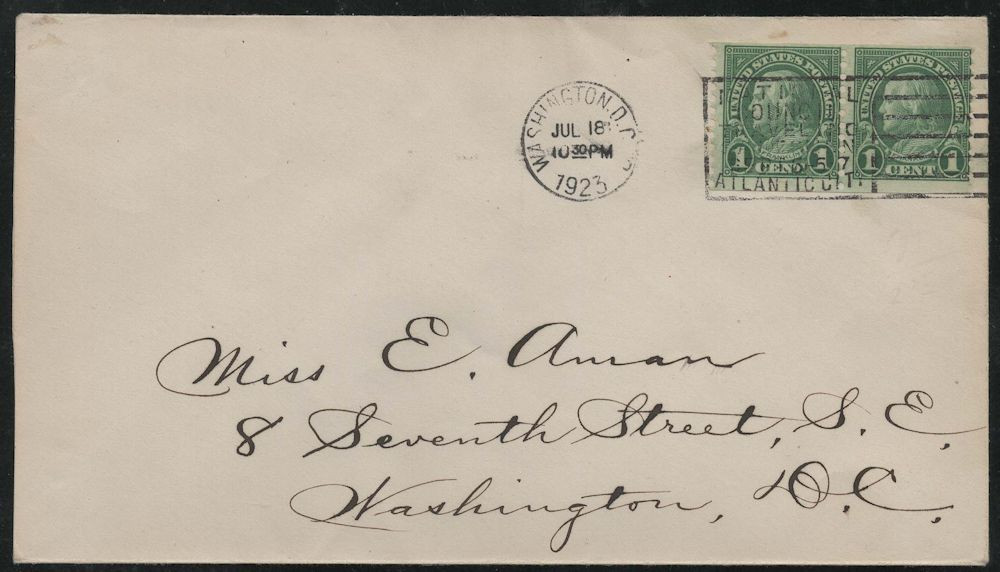 WASHINGTON, D.C.
JUL 18
10 30 PM
1923
UNITED STATES POSTAGE
1 CENT 1
UNITED STATES POSTAGE
1 CENT 1
ATLANTIC CITY
Miss E. Aman
8 Seventh Street, S. E.
Washington, D. C.